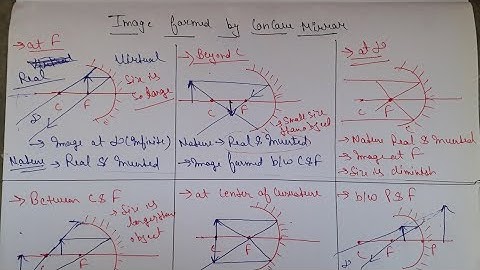 Image farmed by ConCave Mirrar
→ at F
Virtual
Real
Size is
So large
C F
∞
→ Image at ∞ (infinite)
Nature → Real & Inverted
→ Beyond C
C F
→ Small size
than object
Nature → Real & Inverted
→ Image formed b/w C & F
→ at ∞
C F
→ Nature Real & Inverted
→ Image at F
→ Size is diminish
→ Between C & F
→ Size is
larger than
object
C F
→ at Center of Curvature
C F
→ b/w P & F
C F P